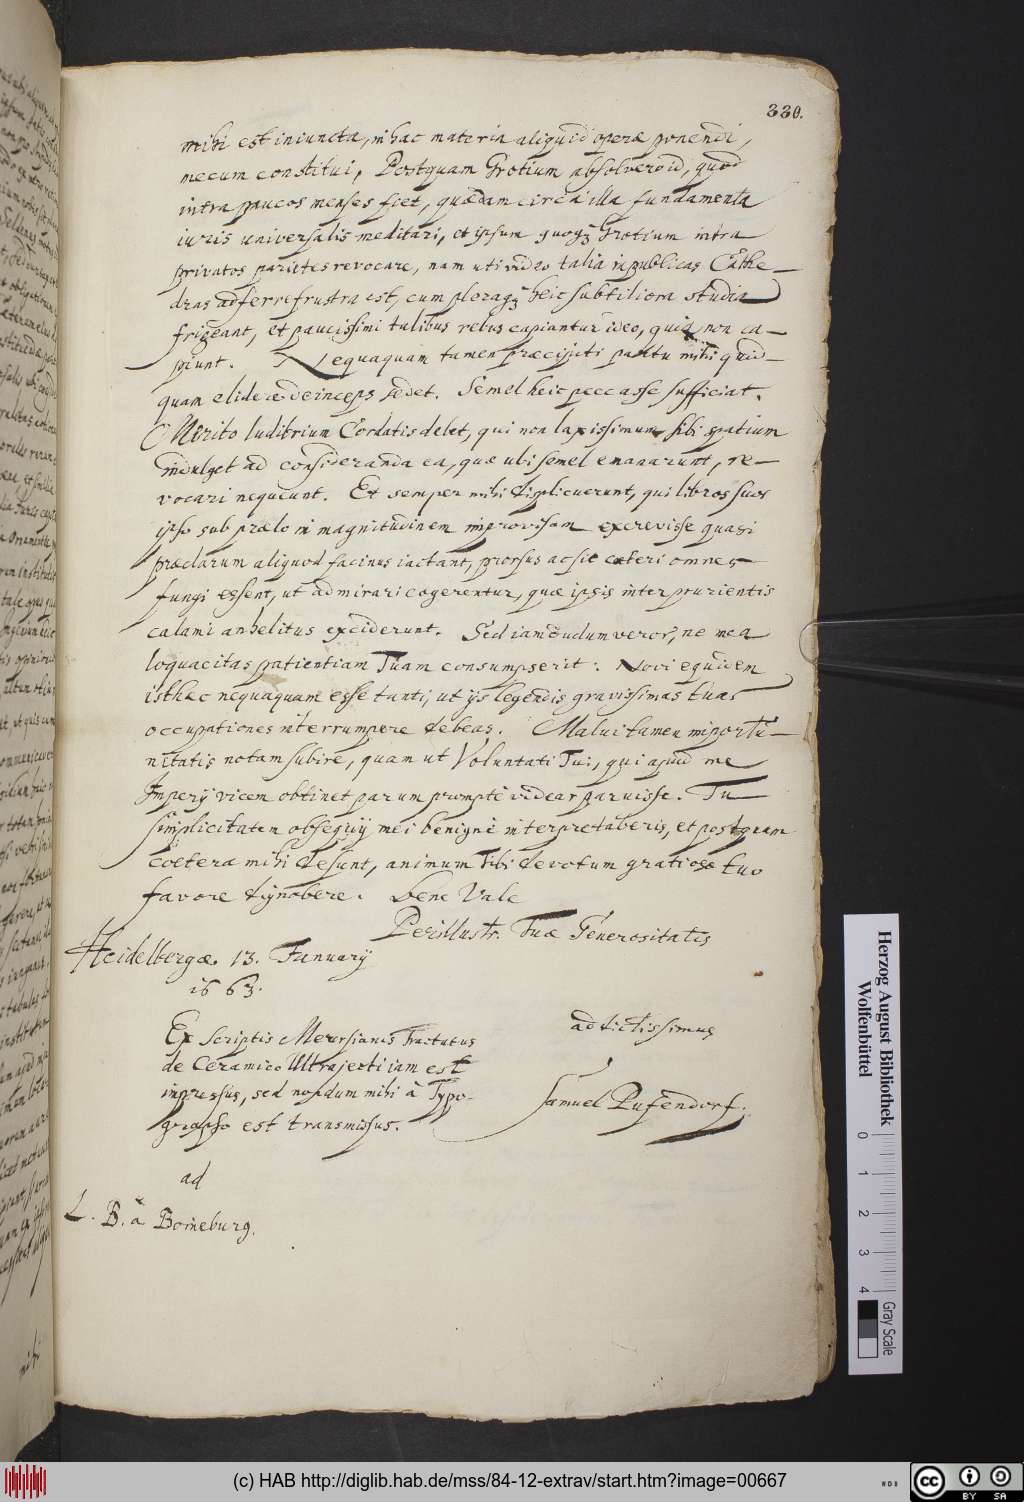 330.
mihi est iniuncta, in hac materia aliquid operæ ponendi,
mecum constitui, Postquam Grotium absolvero id, quod
intra paucos menses fiet, quædam circa illa fundamenta
iuris universalis meditari, et ipsum quoqꝫ Grotium intra
privatos parietes revocare, nam uti video talia in publicas Cathe-
dras adferre frustra est, cum pleraqꝫ heic subtiliora studia
frigeant, et paucissimi talibus rebus capiantur ideo, quia non ca-
piunt. Nequaquam tamen præcipiti partu mihi quid-
quam elidere deinceps sedet. Semel heic peccasse sufficiat.
Merito ludibrium Cordatis debet, qui non laxissimum sibi spatium
indulget ad consideranda ea, quæ ubi semel emanarunt, re-
vocari nequeunt. Et semper mihi displicuerunt, qui libros suos
ipso sub prælo in magnitudinem improvisam excrevisse quasi
præclarum aliquod facinus iactant, prorsus ac si cæteri omnes
fungi essent, ut admirari cogerentur, quæ ipsis inter prurientis
calami anhelitus exciderunt. Sed iamdudum vereor, ne mea
loquacitas patientiam Tuam consumpserit. Novi equidem
isthæc nequaquam esse tanti, ut ijs legendis gravissimas tuas
occupationes interrumpere debeas. Malui tamen importu-
nitatis notam subire, quam ut Voluntati Tuæ, qui apud me
Imperij vicem obtinet parum prompte videar paruisse. Tu
simplicitatem obsequij mei benigne interpretaberis, et postquam
cætera mihi desunt, animum tibi devotum gratioso tuo
favore dignabere. Bene Vale
Perillustr. Tuæ Generositatis
Heidelbergæ. 13. Januarij
1663.
addictissimus
Samuel Pufendorf.
Ex Scriptis Meursianis Tractatus
de Ceramico Ultrajecti iam est
impressus, sed nondum mihi à Typo-
grapho est transmissus.
ad
L. B. à Boineburg.
Herzog August Bibliothek
Wolfenbüttel
0 1 2 3 4
Gray Scale
(c) HAB http://diglib.hab.de/mss/84-12-extrav/start.htm?image=00667
cc BY SA